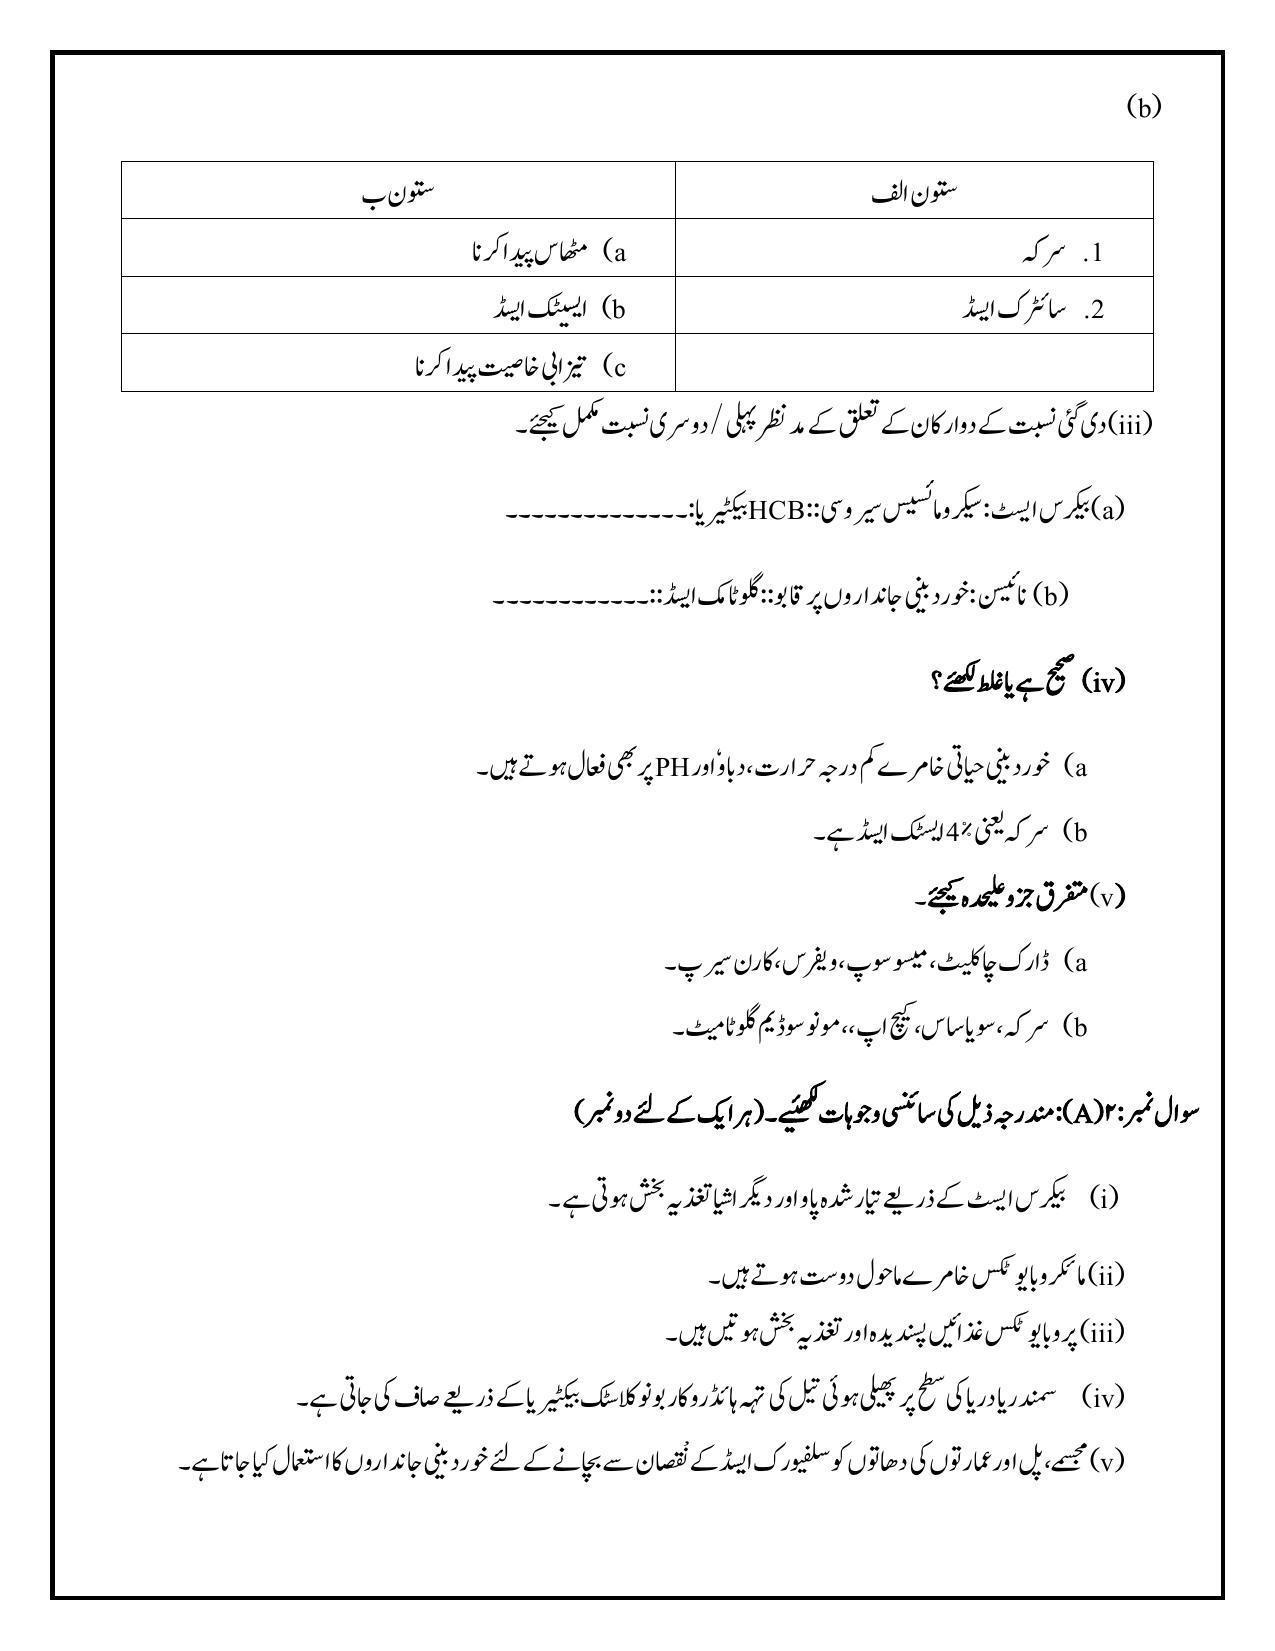 (b)
ستون الف ستون ب
1. سرکہ a) مٹھاس پیدا کرنا
2. سائٹرک ایسڈ b) ایسیٹک ایسڈ
c) تیزابی خاصیت پیدا کرنا
(iii) دی گئی نسبت کے دو ارکان کے تعلق کے مد نظر پہلی / دوسری نسبت مکمل کیجئے۔
(a) بیکرس ایسٹ: سیکرومائسیس سیروسی:: HCB بیکٹیریا:--------------
(b) نائیسن: خوردبینی جانداروں پر قابو:: گلوٹامک ایسڈ::------------
(iv) صحیح ہے یا غلط لکھئے؟
a) خوردبینی حیاتی خامرے کم درجہ حرارت، دباؤ اور PH پر بھی فعال ہوتے ہیں۔
b) سرکہ یعنی 4٪ ایسٹک ایسڈ ہے۔
(v) متفرق جزو علیحدہ کیجئے۔
a) ڈارک چاکلیٹ، میسو سوپ، ویفرس، کارن سیرپ۔
b) سرکہ، سویا ساس، کیچ اپ،، مونو سوڈیم گلوٹامیٹ۔
سوال نمبر:۲(A): مندرجہ ذیل کی سائنسی وجوہات لکھئیے۔ (ہر ایک کے لئے دو نمبر)
(i) بیکرس ایسٹ کے ذریعے تیار شدہ پاو اور دیگر اشیا تغذیہ بخش ہوتی ہے۔
(ii) مائکروبایوٹکس خامرے ماحول دوست ہوتے ہیں۔
(iii) پروبایوٹکس غذائیں پسندیدہ اور تغذیہ بخش ہوتیں ہیں۔
(iv) سمندر یا دریا کی سطح پر پھیلی ہوئی تیل کی تہہ ہائڈروکاربونوکلاسٹک بیکٹیریا کے ذریعے صاف کی جاتی ہے۔
(v) مجسمے، پل اور عمارتوں کی دھاتوں کو سلفیورک ایسڈ کے نُقصان سے بچانے کے لئے خوردبینی جانداروں کا استعمال کیا جاتا ہے۔